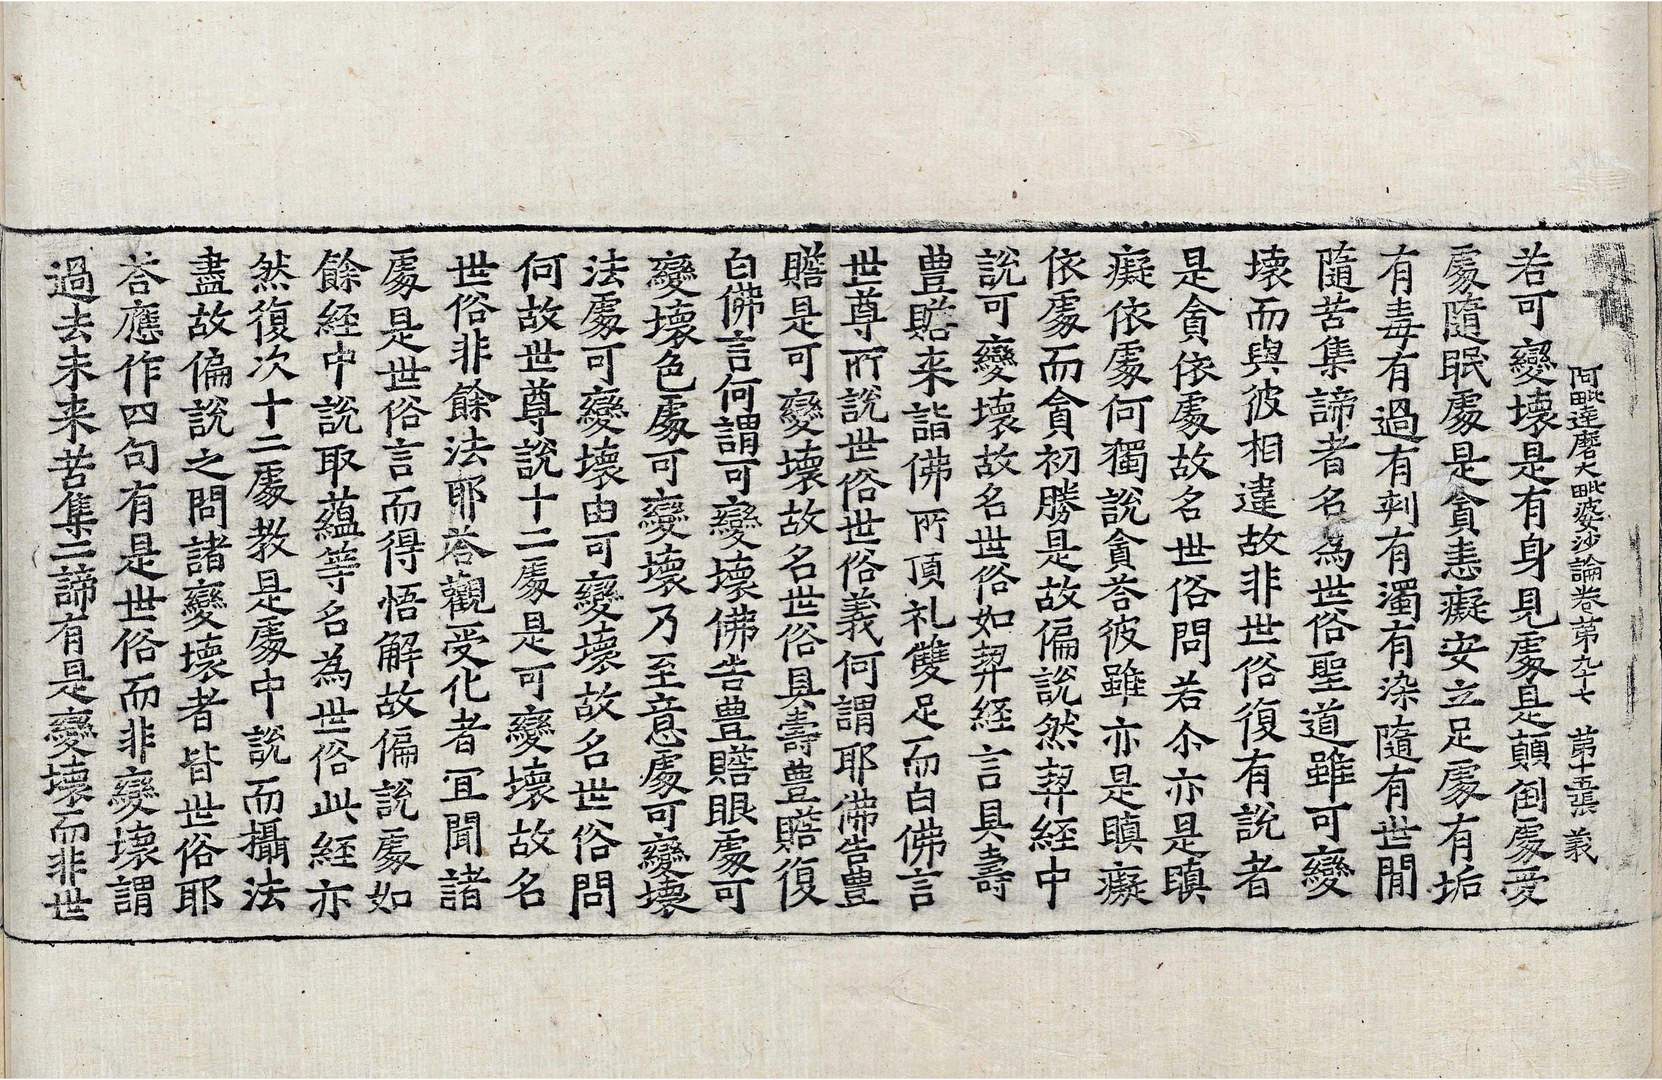 阿毗達磨大毗婆沙論卷第九十七　第十五張　義
若可變壞是有身見處是顛倒處愛
處隨眠處是貪恚癡安立足處有垢
有毒有過有刺有濁有染隨有世閒
隨苦集諦者名為世俗聖道雖可變
壞而與彼相違故非世俗復有說者
是貪依處故名世俗問若尒亦是瞋
癡依處何獨說貪荅彼雖亦是瞋癡
依處而貪初勝是故偏說然契經中
說可變壞故名世俗如契經言具壽
豊贍来詣佛所頂礼雙足而白佛言
世尊所說世俗世俗義何謂耶佛告豊
贍是可變壞故名世俗具壽豊贍復
白佛言何謂可變壞佛告豊贍眼處可
變壞色處可變壞乃至意處可變壞
法處可變壞由可變壞故名世俗問
何故世尊說十二處是可變壞故名
世俗非餘法耶荅觀受化者冝聞諸
處是世俗言而得悟解故偏說處如
餘経中說取蘊等名為世俗此經亦
然復次十二處教是處中說而攝法
盡故偏說之問諸變壞者皆世俗耶
荅應作四句有是世俗而非變壞謂
過去未来苦集二諦有是變壞而非世